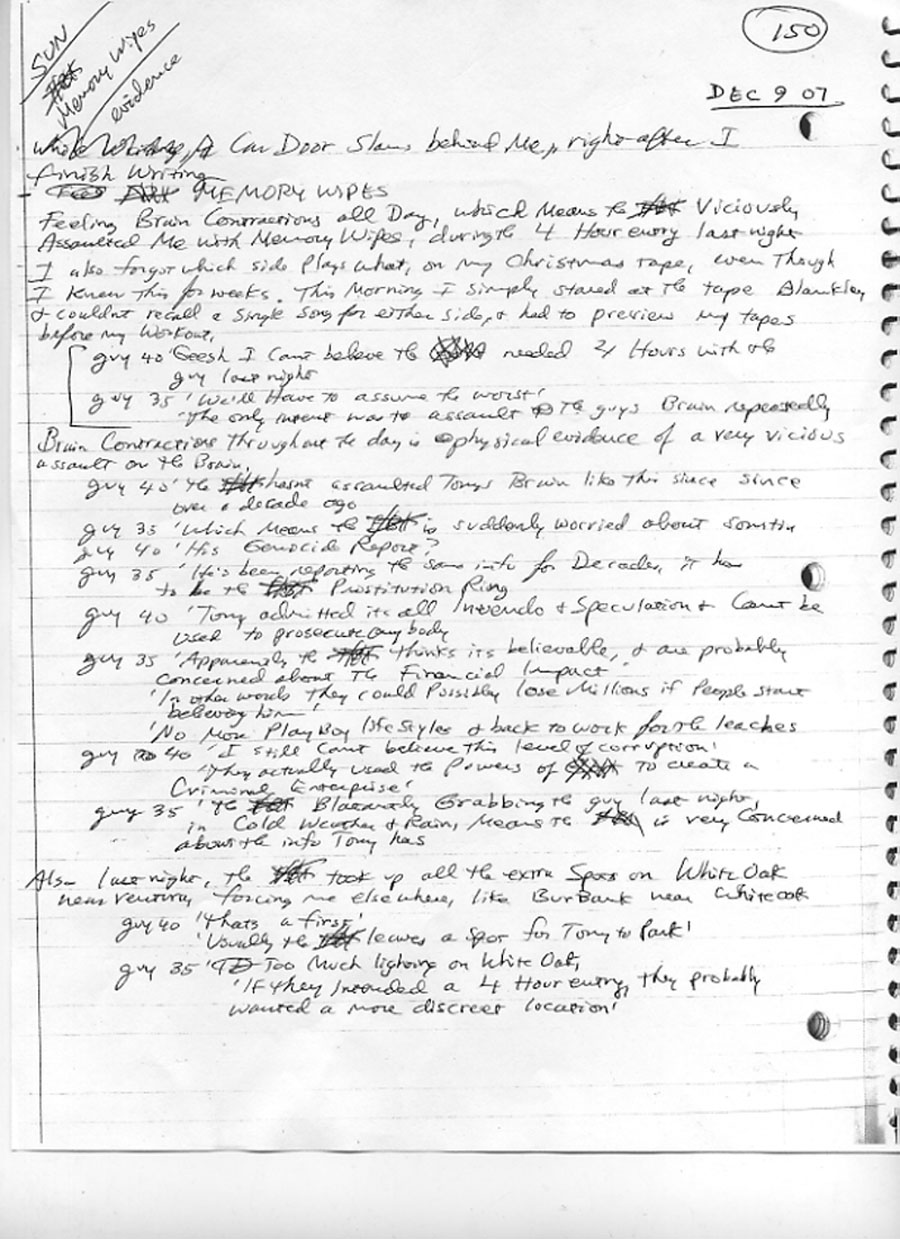 150
SUN
Memory Wipes
evidence
DEC 9 07
While Writing, A Car Door Slams behind Me, right after I
finish Writing
MEMORY WIPES
Feeling Brain Contractions all Day, which Means the Viciously
Assaulted Me with Memory Wipes, during the 4 Hour entry last night
I also forgot which side Plays what, on my Christmas Tape, even Though
I knew this for weeks. This Morning I simply stared at the tape Blankley
& couldnt recall a single song for either side, & had to preview my tapes
before my Workout,
guy 40 'Geesh I Cant believe the needed 4 Hours with the
guy last night
guy 35 'We'll Have to assume the worst'
'The only intent was to assault The guys Brain repeatedly
Brain Contractions Throughout the day is physical evidence of a very vicious
assault on the Brain,
guy 40 'the hasnt assaulted Tonys Brain like this since since
over a decade ago
guy 35 'Which Means the is suddenly worried about somtin
guy 40 'His Genocide Report?
guy 35 'He's been reporting the same info for Decades, it has
to be the Prostitution Ring
guy 40 'Tony admitted its all Inuendo & Speculation & Cant be
used to prosecute anybody
guy 35 'Apparently the thinks its believable, & are probably
concerned about the Financial Impact'
'In other words they could Possibly lose Millions if People start
believing him'
'No More PlayBoy lifeStyles & back to work for the leaches
guy 40 'I still Cant believe this level of corruption'
'They actually used the Powers of to create a
Criminal Enterprise'
guy 35 'the Blatantly Grabbing the guy last night,
in Cold Weather & Rain, Means the is very Concerned
about the info Tony has
Also last night, the took up all the extra Spots on White Oak
near Ventura, forcing me elsewhere, like BurBank near Whiteoak
guy 40 'Thats a first'
'Usually the leaves a Spot for Tony to Park'
guy 35 'Too Much lighting on White Oak,
'If they Intended a 4 Hour entry, they probably
wanted a more discreet location'